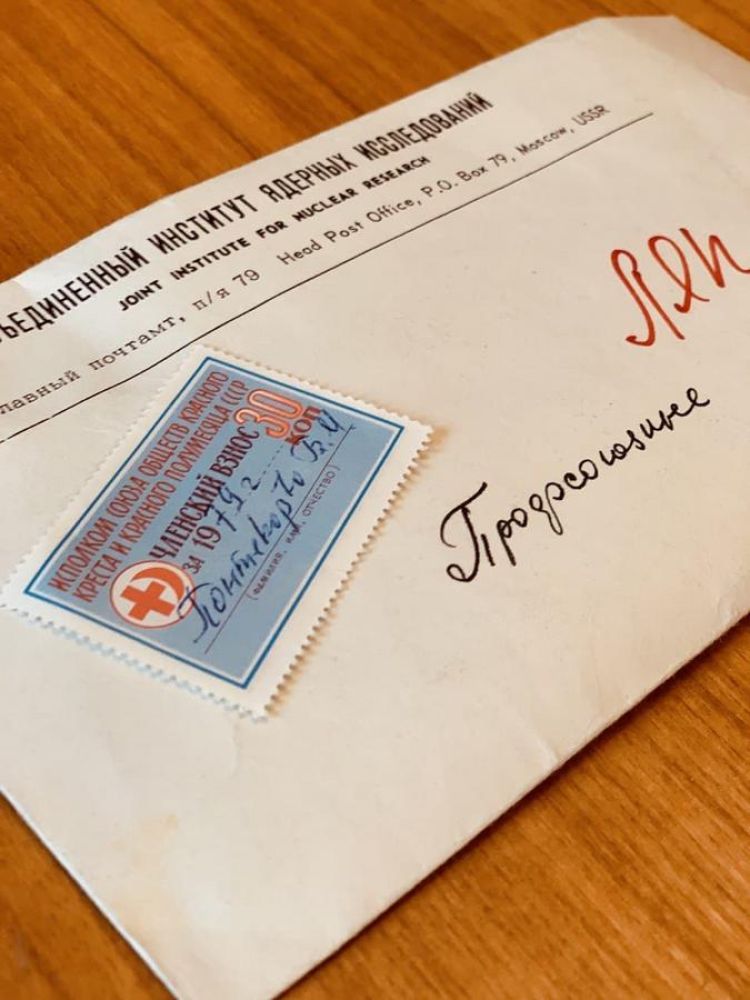 ЪЕДИНЕННЫЙ ИНСТИТУТ ЯДЕРНЫХ ИССЛЕДОВАНИЙ
JOINT INSTITUTE FOR NUCLEAR RESEARCH
лавный почтамт, п/я 79 Head Post Office, P.O. Box 79, Moscow, USSR
ЛЯП
Профсоюзные
ИСПОЛКОМ СОЮЗА ОБЩЕСТВ КРАСНОГО
КРЕСТА И КРАСНОГО ПОЛУМЕСЯЦА СССР
ЧЛЕНСКИЙ ВЗНОС 30 КОП
ЗА 1979 г
Понтекорво Б. М
(ФАМИЛИЯ, ИМЯ, ОТЧЕСТВО)